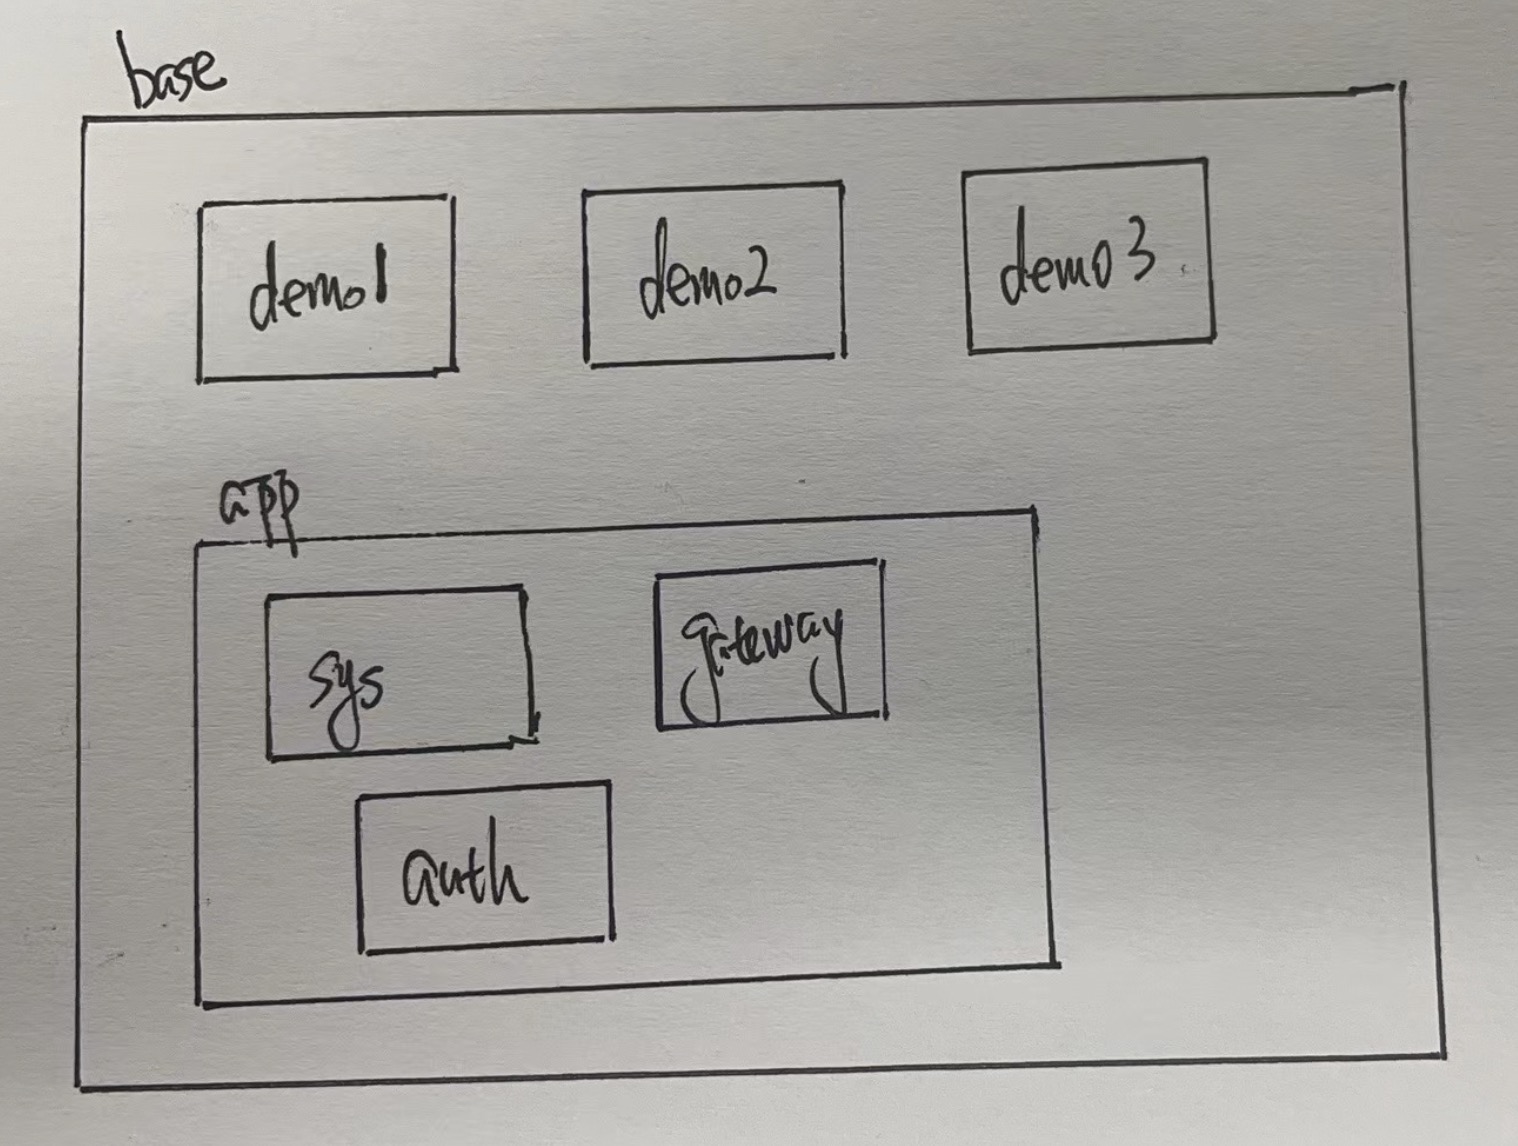 base
demo1
demo2
demo3
app
sys
gateway
auth